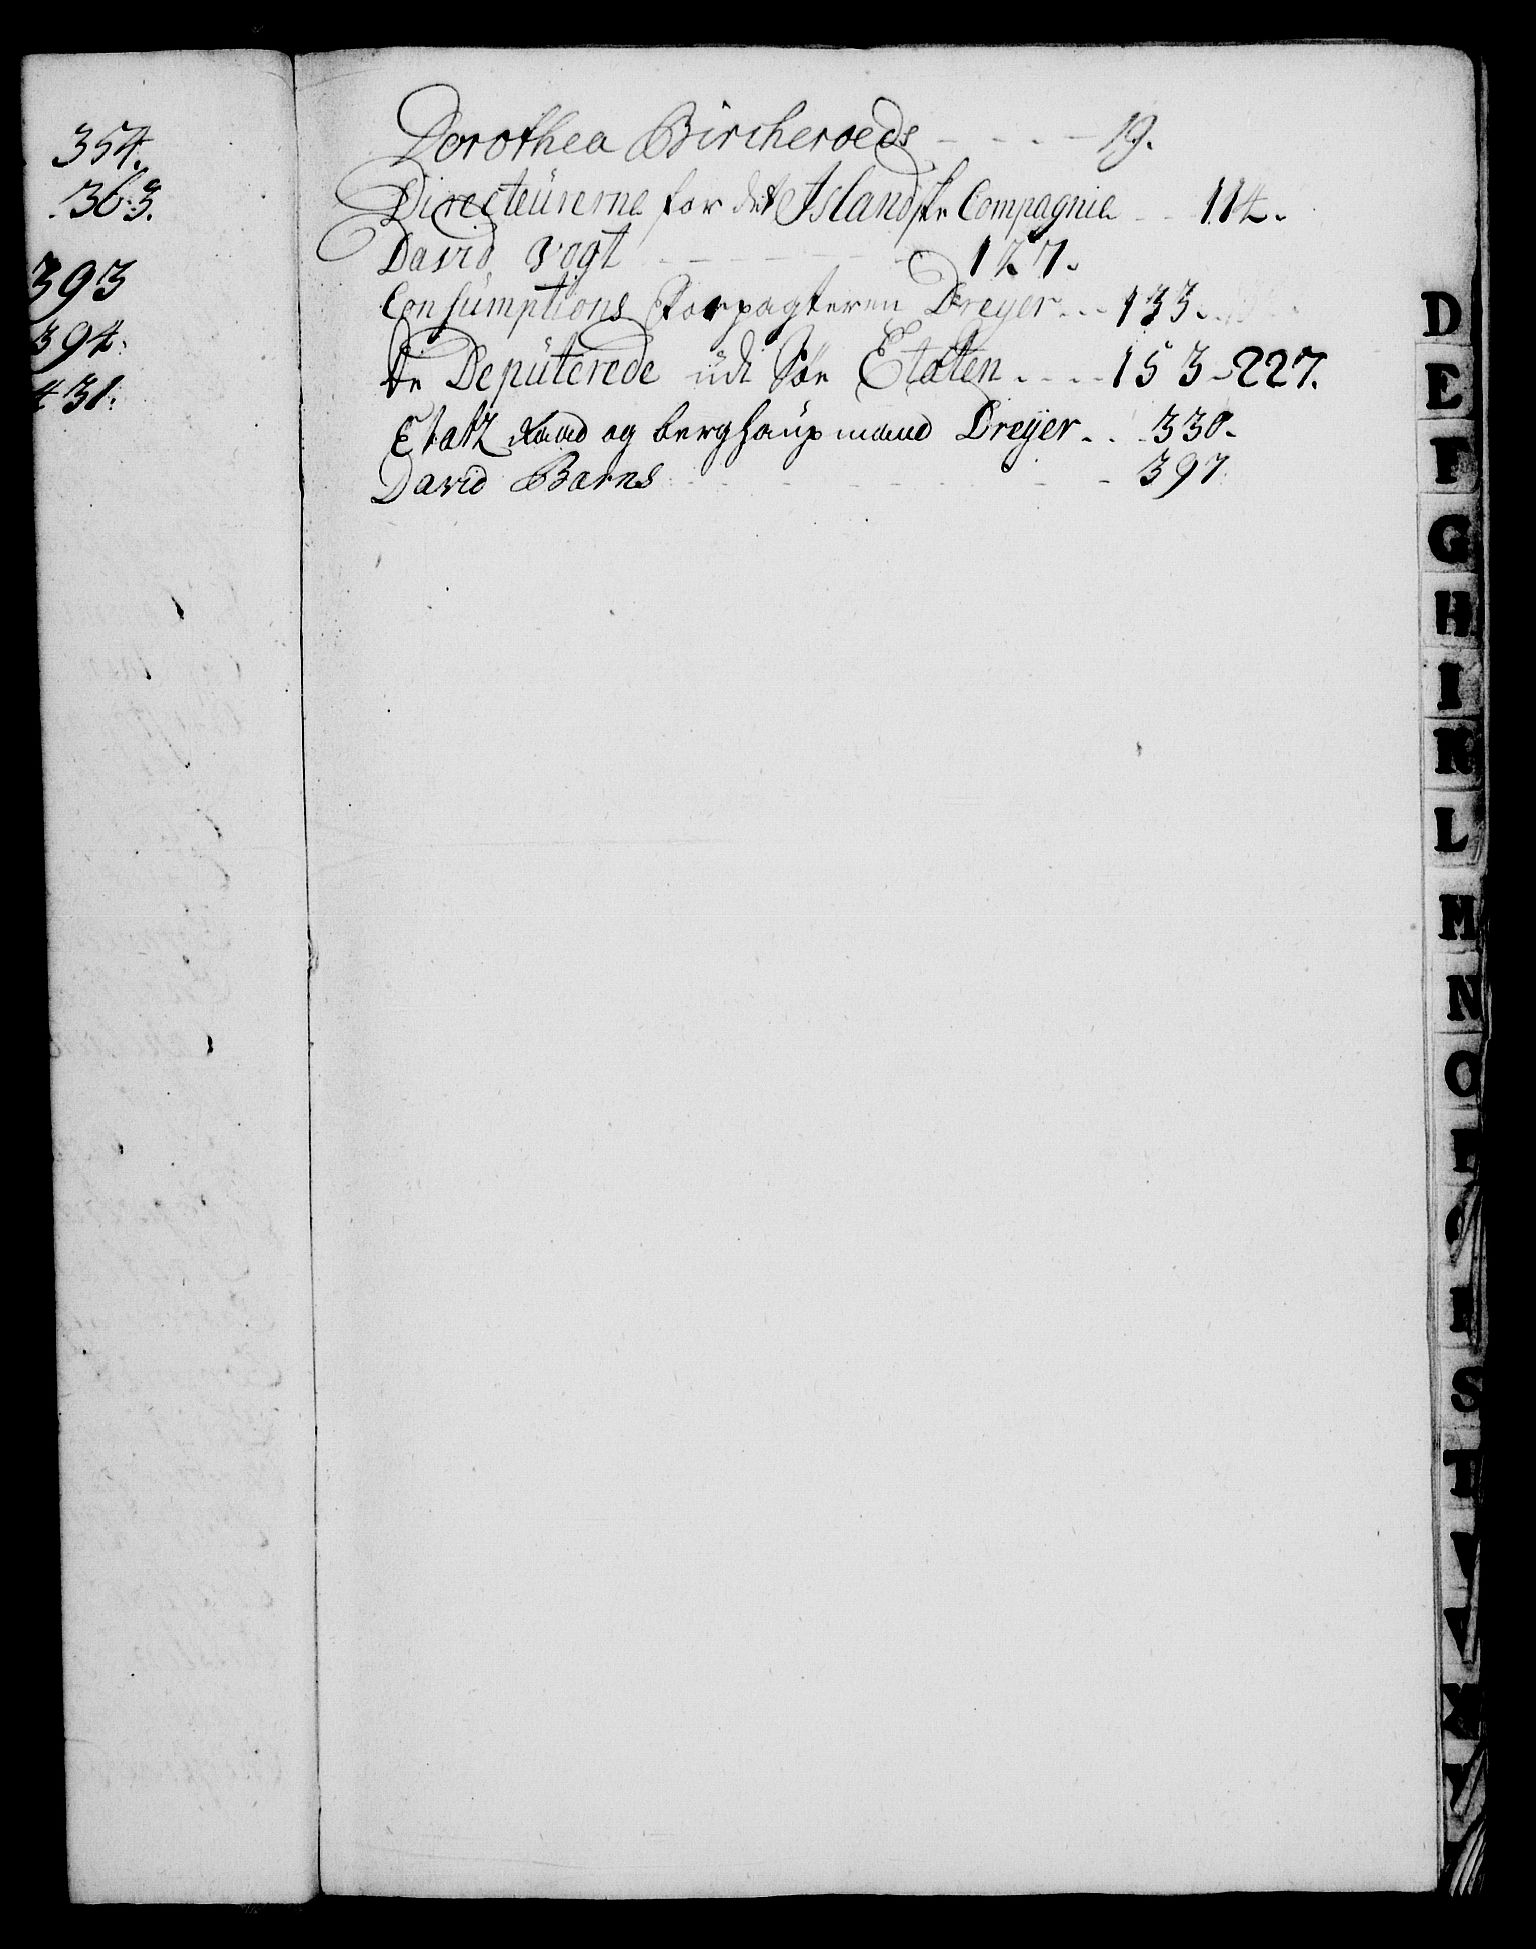 354.
363.
393
394.
431.
Dorothea Bircheroeds - - - - 19.
Directeürerne for det Islandske Compagnie - - 114.
David Vogt - - - - - - - 127.
Consümptions Forpagteren Dreyer - - - 133.
de Depüterede üdi Söe Etaten - - - - 153 - 227.
Etatz Raad og berghaupmand Dreyer - - - 330.
David Barns - - - - - - - 397.
D
E
F
G
H
I
K
L
M
N
O
P
Q
R
S
T
V
X
Y